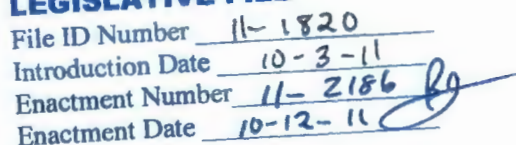 File ID Number 11-1820
Introduction Date 10-3-11
Enactment Number 11-2186
Enactment Date 10-12-11